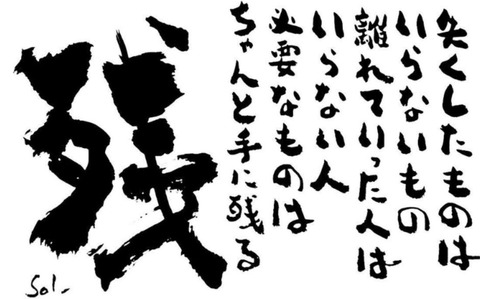 失くしたものは
いらないもの
離れていった人は
いらない人
必要なものは
ちゃんと手に残る
残
Sol.